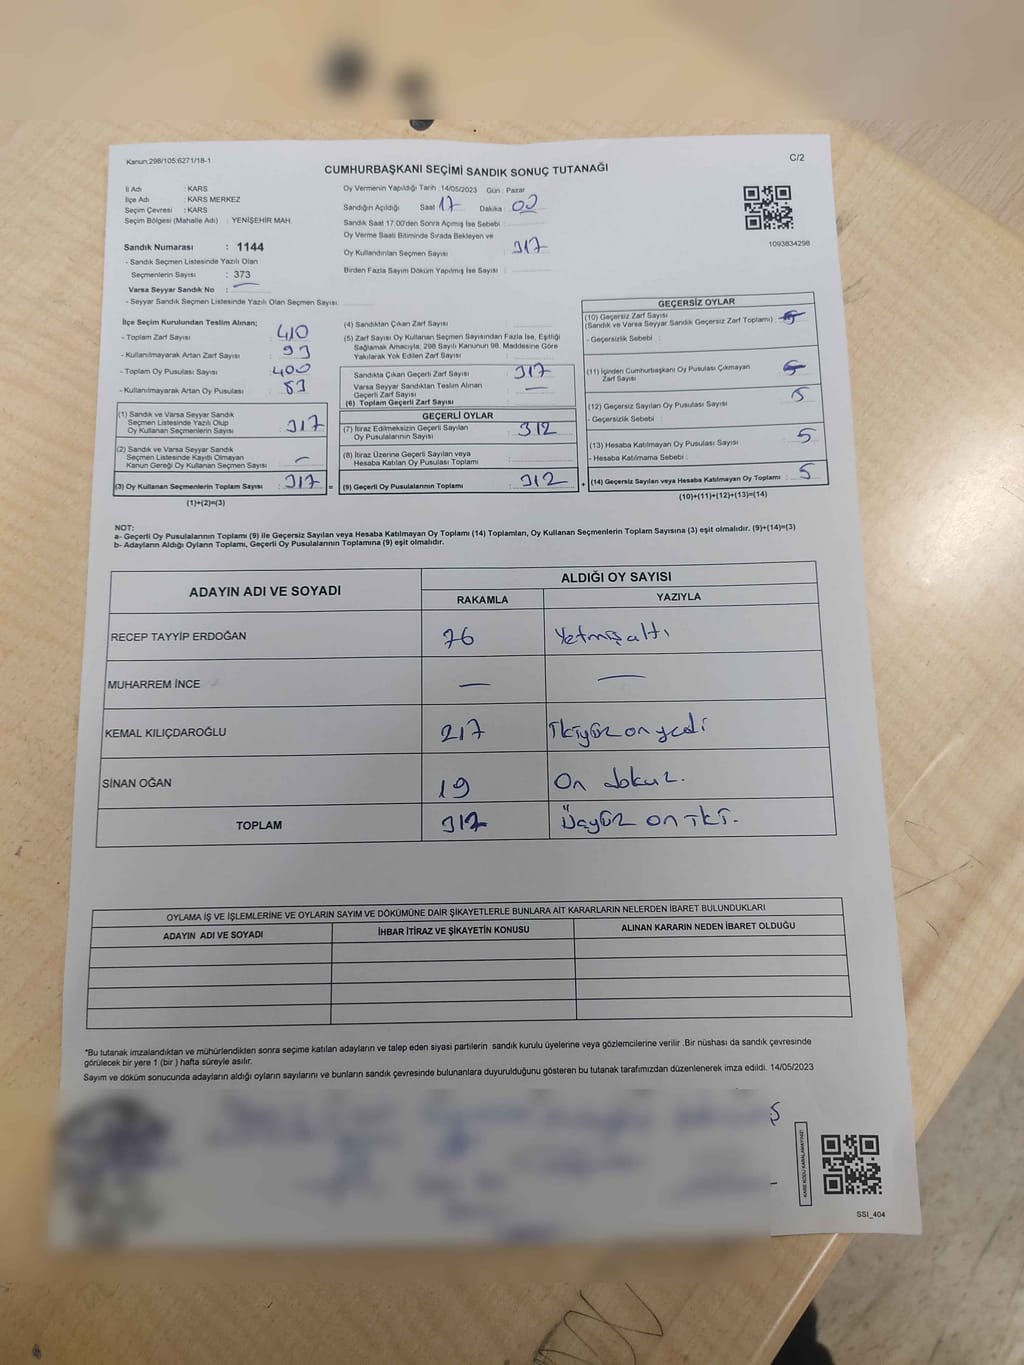 Kanun,298/105;6271/18-1
C/2
CUMHURBAŞKANI SEÇİMİ SANDIK SONUÇ TUTANAĞI
İl Adı : KARS
İlçe Adı : KARS MERKEZ
Seçim Çevresi : KARS
Seçim Bölgesi (Mahalle Adı) : YENİŞEHİR MAH.
Sandık Numarası : 1144
- Sandık Seçmen Listesinde Yazılı Olan
Seçmenlerin Sayısı : 373
Varsa Seyyar Sandık No :
- Seyyar Sandık Seçmen Listesinde Yazılı Olan Seçmen Sayısı:
Oy Vermenin Yapıldığı Tarih :14/05/2023 Gün : Pazar
Sandığın Açıldığı Saat 17 Dakika 00
Sandık Saat 17:00'den Sonra Açımış İse Sebebi :
Oy Verme Saati Bitiminde Sırada Bekleyen ve
Oy Kullandırılan Seçmen Sayısı 317
Birden Fazla Sayım Döküm Yapılmış İse Sayısı :
1093834298
İlçe Seçim Kurulundan Teslim Alınan;
- Toplam Zarf Sayısı : 410
- Kullanılmayarak Artan Zarf Sayısı : 93
- Toplam Oy Pusulası Sayısı : 400
- Kullanılmayarak Artan Oy Pusulası : 83
(1) Sandık ve Varsa Seyyar Sandık
Seçmen Listesinde Yazılı Olup
Oy Kullanan Seçmenlerin Sayısı : 317
(2) Sandık ve Varsa Seyyar Sandık
Seçmen Listesinde Kayıtlı Olmayan
Kanun Gereği Oy Kullanan Seçmen Sayısı : —
(3) Oy Kullanan Seçmenlerin Toplam Sayısı : 317 =
(1)+(2)=(3)
(4) Sandıktan Çıkan Zarf Sayısı :
(5) Zarf Sayısı Oy Kullanan Seçmen Sayısından Fazla İse, Eşitliği
Sağlamak Amacıyla; 298 Sayılı Kanunun 98. Maddesine Göre
Yakılarak Yok Edilen Zarf Sayısı :
Sandıkta Çıkan Geçerli Zarf Sayısı : 317
Varsa Seyyar Sandıktan Teslim Alınan
Geçerli Zarf Sayısı : —
(6) Toplam Geçerli Zarf Sayısı :
GEÇERLİ OYLAR
(7) İtiraz Edilmeksizin Geçerli Sayılan
Oy Pusulalarının Sayısı : 312
(8) İtiraz Üzerine Geçerli Sayılan veya
Hesaba Katılan Oy Pusulası Toplamı :
(9) Geçerli Oy Pusulalarının Toplamı : 312 +
GEÇERSİZ OYLAR
(10) Geçersiz Zarf Sayısı
(Sandık ve Varsa Seyyar Sandık Geçersiz Zarf Toplamı) :
- Geçersizlik Sebebi :
(11) İçinden Cumhurbaşkanı Oy Pusulası Çıkmayan
Zarf Sayısı :
(12) Geçersiz Sayılan Oy Pusulası Sayısı : 5
- Geçersizlik Sebebi :
(13) Hesaba Katılmayan Oy Pusulası Sayısı : 5
- Hesaba Katılmama Sebebi :
(14) Geçersiz Sayılan veya Hesaba Katılmayan Oy Toplamı : 5
(10)+(11)+(12)+(13)=(14)
NOT:
a- Geçerli Oy Pusulalarının Toplamı (9) ile Geçersiz Sayılan veya Hesaba Katılmayan Oy Toplamı (14) Toplamları, Oy Kullanan Seçmenlerin Toplam Sayısına (3) eşit olmalıdır. (9)+(14)=(3)
b- Adayların Aldığı Oyların Toplamı, Geçerli Oy Pusulalarının Toplamına (9) eşit olmalıdır.
ADAYIN ADI VE SOYADI
ALDIĞI OY SAYISI
RAKAMLA YAZIYLA
RECEP TAYYİP ERDOĞAN 76 Yetmiş altı
MUHARREM İNCE — —
KEMAL KILIÇDAROĞLU 217 İkiyüz on yedi
SİNAN OĞAN 19 On dokuz.
TOPLAM 312 Üçyüz on iki.
OYLAMA İŞ VE İŞLEMLERİNE VE OYLARIN SAYIM VE DÖKÜMÜNE DAİR ŞİKAYETLERLE BUNLARA AİT KARARLARIN NELERDEN İBARET BULUNDUKLARI
ADAYIN ADI VE SOYADI İHBAR İTİRAZ VE ŞİKAYETİN KONUSU ALINAN KARARIN NEDEN İBARET OLDUĞU
*Bu tutanak imzalandıktan ve mühürlendikten sonra seçime katılan adayların ve talep eden siyasi partilerin sandık kurulu üyelerine veya gözlemcilerine verilir .Bir nüshası da sandık çevresinde
görülecek bir yere 1 (bir ) hafta süreyle asılır.
Sayım ve döküm sonucunda adayların aldığı oyların sayılarını ve bunların sandık çevresinde bulunanlara duyurulduğunu gösteren bu tutanak tarafımızdan düzenlenerek imza edildi. 14/05/2023
KARE KODU KARALAMAYINIZ!
SSI_404